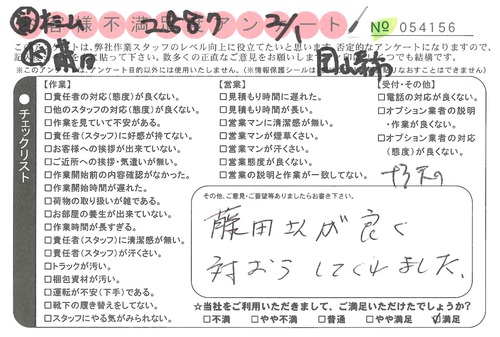 お客様不満足度アンケート
2887 2/1
№ 054156
このアンケートは、弊社作業スタッフのレベル向上に役立てたいと思います。否定的なアンケートになりますので、
数多くの正直なご意見をお願いします。
つでも結構です。
※このアンケートは、アンケート目的以外には使用いたしません。(※情報保護シールは
はがすことはできません)
チェックリスト
【作業】
□責任者の対応(態度)が良くない。
□他のスタッフの対応(態度)が良くない。
□作業を見ていて不安がある。
□責任者(スタッフ)に好感が持てない。
□お客様への挨拶が出来ていない。
□ご近所への挨拶・気遣いが無い。
□作業開始前の内容確認がなかった。
□作業開始時間が遅れた。
□荷物の取り扱いが雑である。
□お部屋の養生が出来ていない。
□作業時間が長すぎる。
□責任者(スタッフ)に清潔感が無い。
□責任者(スタッフ)が汗くさい。
□トラックが汚い。
□梱包資材が汚い。
□運転が不安(下手)である。
□靴下の履き替えをしてない。
□スタッフにやる気がみられない。
【営業】
□見積もり時間に遅れた。
□見積もり時間が長い。
□営業マンに清潔感が無い。
□営業マンが煙草くさい。
□営業マンが汗くさい。
□営業態度が良くない。
□営業の説明と作業が一致してない。
【受付・その他】
□電話の対応が良くない。
□オプション業者の説明
・作業が良くない。
□オプション業者の対応
(態度)が良くない。
その他、ご意見・ご要望等ありましたらお書き下さい。
藤田さんが良く
対おうしてくれました。
☆当社をご利用いただきまして、ご満足いただけたでしょうか?
□不満 □やや不満 □普通 □やや満足 ☑満足